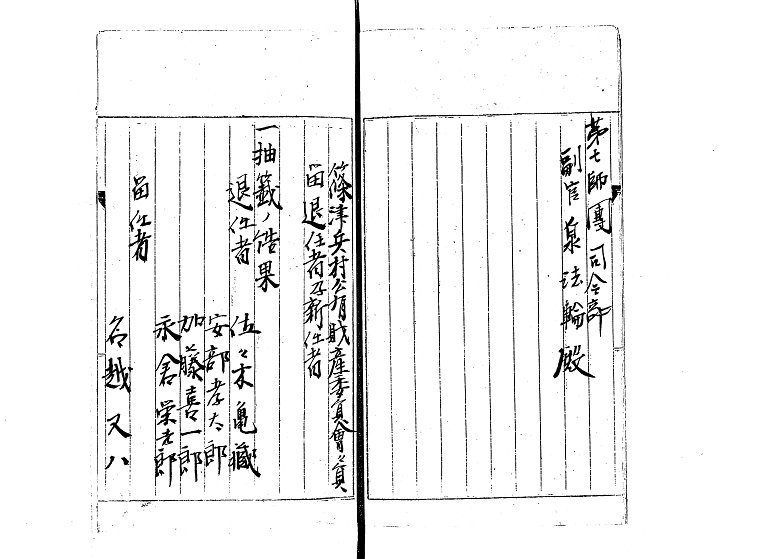 第七師團司令部
副官 泉法輪殿
篠津兵村公有財産委員會々員
留退任者及新任者
一抽籤ノ結果
退任者 佐々木亀藏
安部孝太郎
加藤喜一郎
永倉栄吉郎
留任者
名越又八